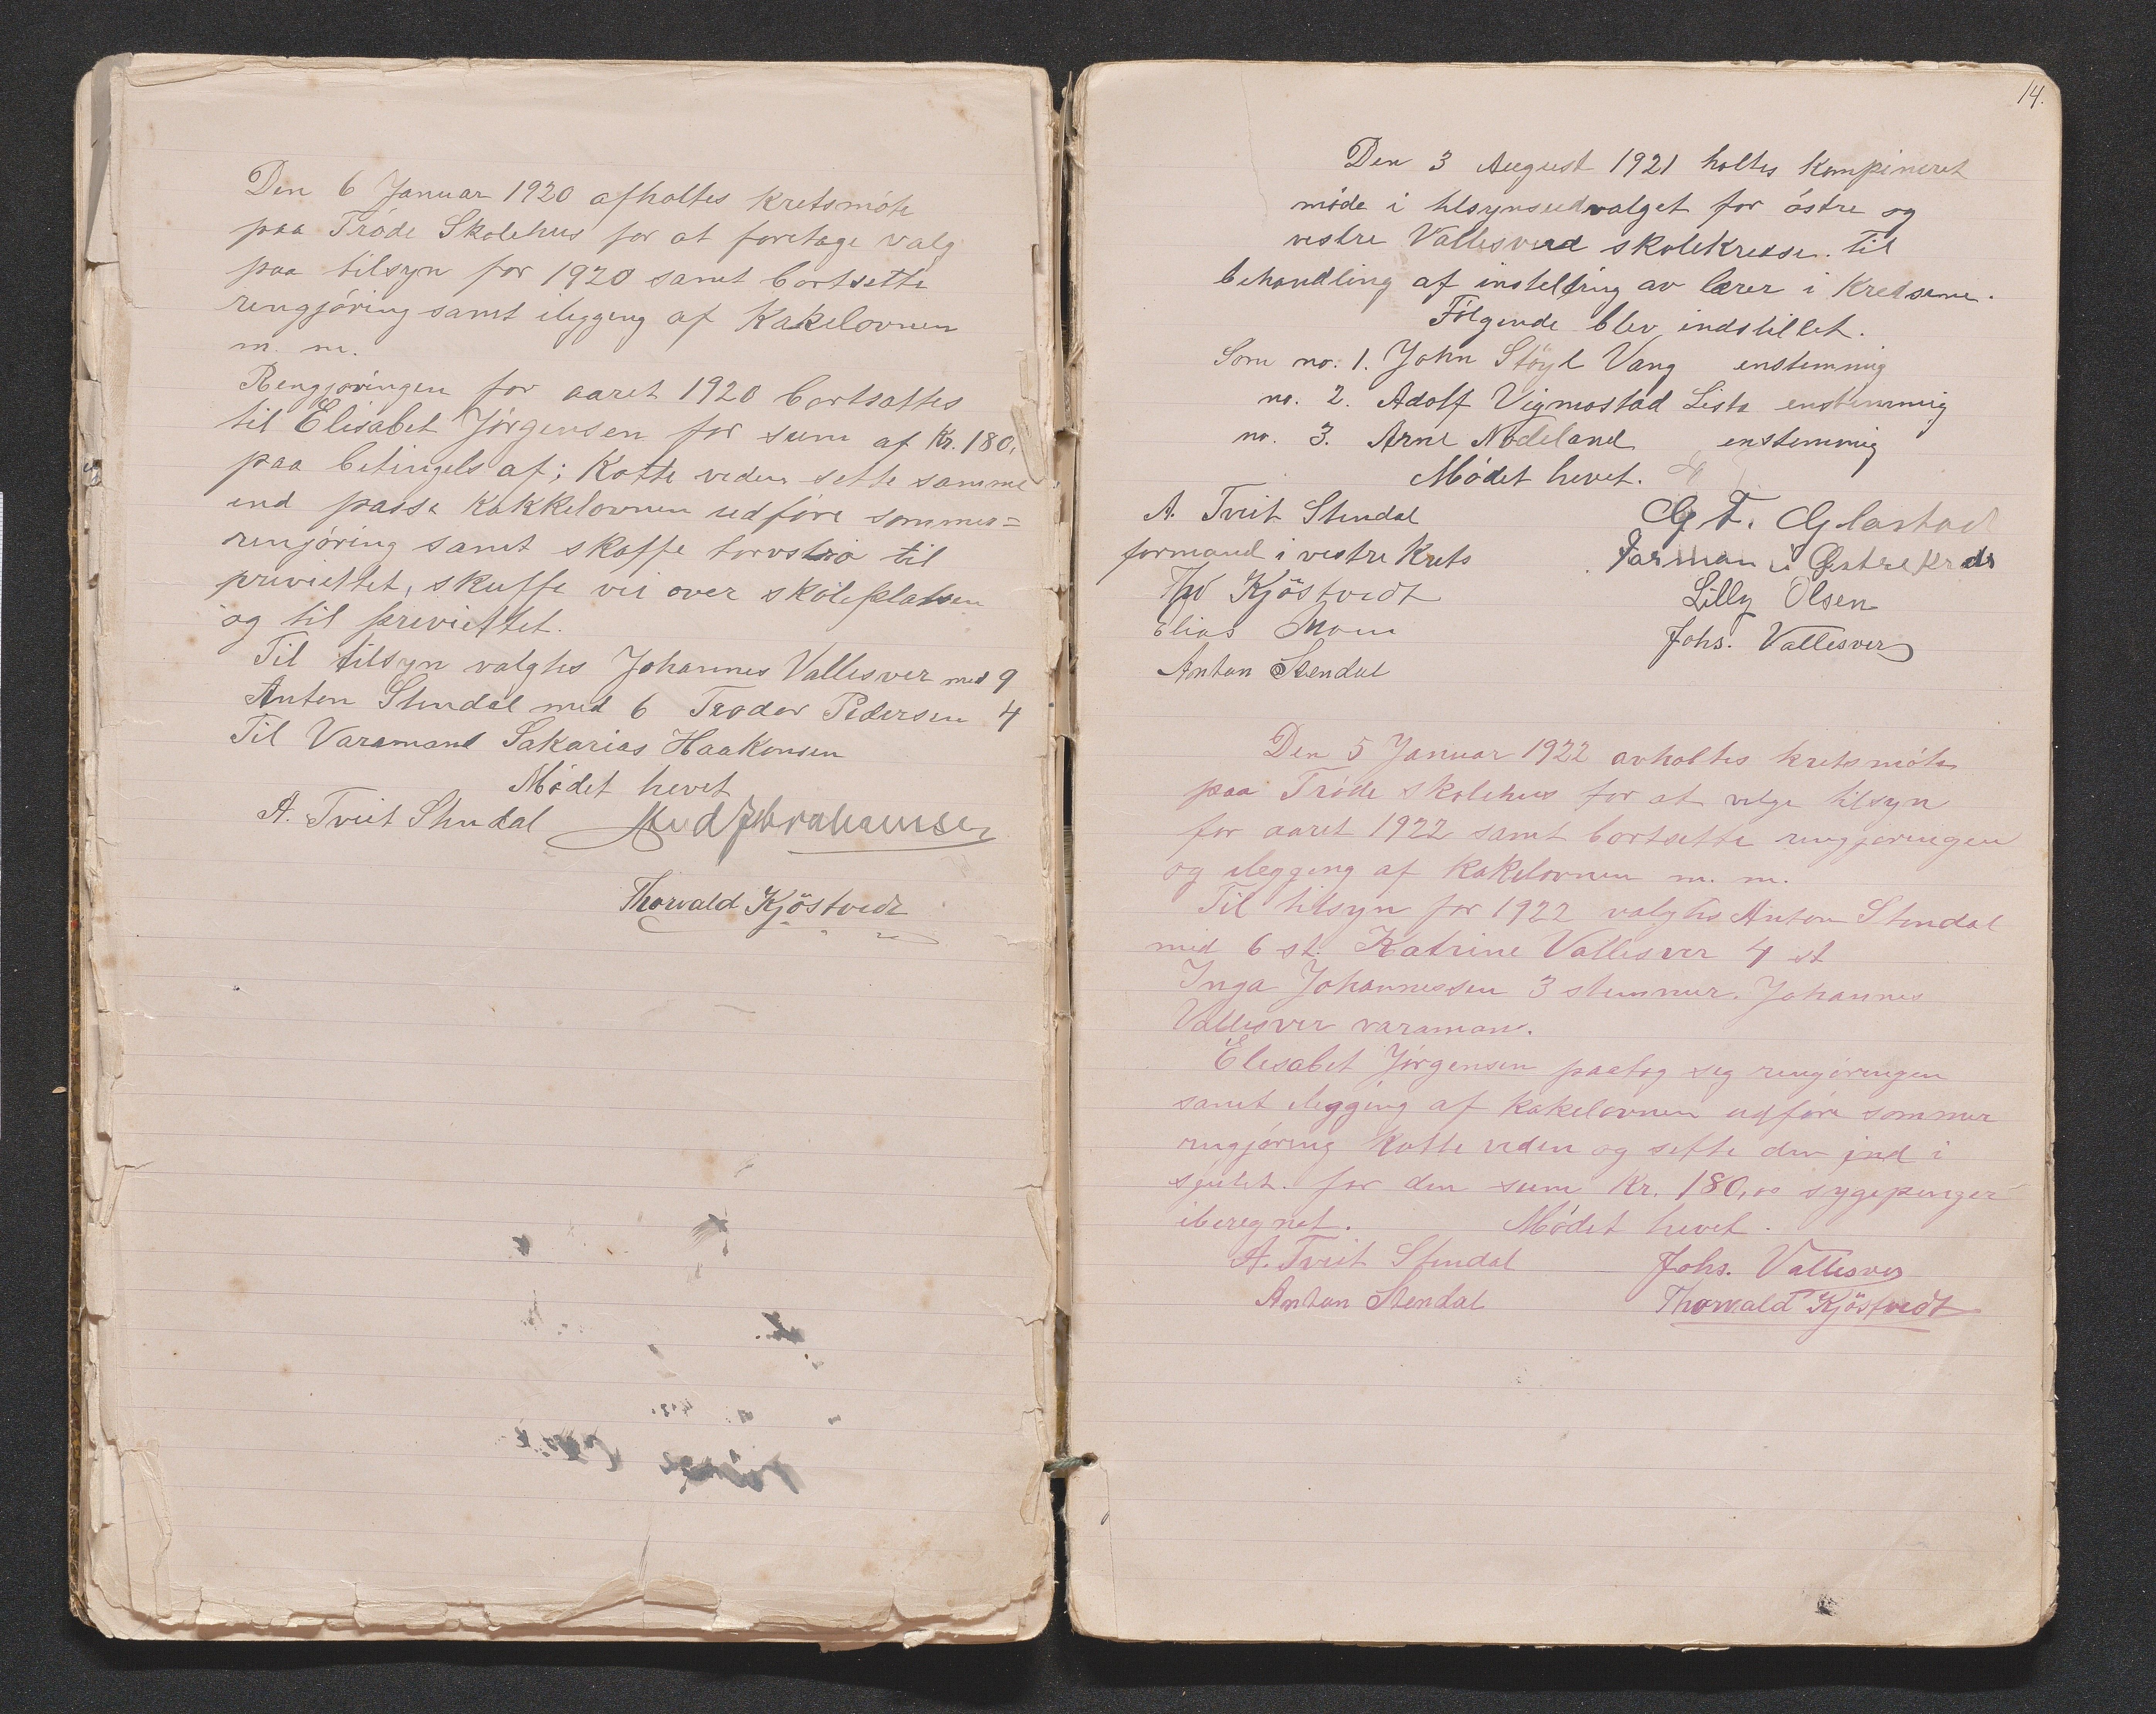 Den 6 Januar 1920 afholtes kretsmöte
paa Tröde Skolehus for at foretage valg
paa tilsyn for 1920 samt bortsette
rengjöring samt ilegging af Kakelovnen
m. m.
Rengjöringen for aaret 1920 bortsattes
til Elisabet Jörgensen for sum af Kr. 180,
paa betingels af; Kotte veden sette samme
ind passe kakkelovnen udföre sommer=
rengjöring samt skaffe torvströ til
previettet, skuffe vei over skoleplatsen
og til previettet.
Til tilsyn valgtes Johannes Vallesver med 9
Anton Stendal med 6 Teodor Pedersen 4
Til Varamand Sakarias Haakonsen
Mödet hevet
A. Tveit Stendal Abrahamsen
Thorvald Kjöstvedt
14.
Den 3 August 1921 holtes kompineret
möde i tilsynsudvalget for östre og
vestre Vallesverd skolekredse. til
behandling af instelling av lærer i Kredsene.
Fölgende blev indstillet.
Som no: 1. John Støyl Vang enstemmig
no. 2. Adolf Vigmostad Lista enstemmig
no. 3. Arne Nodeland enstemmig
Mödet hevet.
A. Tveit Stendal G. T. Glastad
formand i vestre Krets Forman i Østre Kreds
Thv Kjöstvedt Lilly Olsen
Elias Moen Johs. Vallesver
Anton Stendal
Den 5 Januar 1922 avholtes kretsmöte
paa Tröde skolehus for at velge tilsyn
for aaret 1922 samt bortsette rengjøringen
og ilegging af kakelovnen m. m.
Til tilsyn for 1922 valgtes Anton Stendal
med 6 st. Katrine Vallesver 4 st
Inga Johannessen 3 stemmer. Johannes
Vallesver varamand.
Elesabet Jörgensen paatog seg rengöringen
samt ilegging af kakelovnen udföre sommer
rengjöring kotte veden og sette den ind i
sjulet. for den sum Kr. 180,00 sygepenger
iberegnet. Mödet hevet.
A. Tveit Stendal Johs. Vallesver
Anton Stendal Thorvald Kjöstvedt